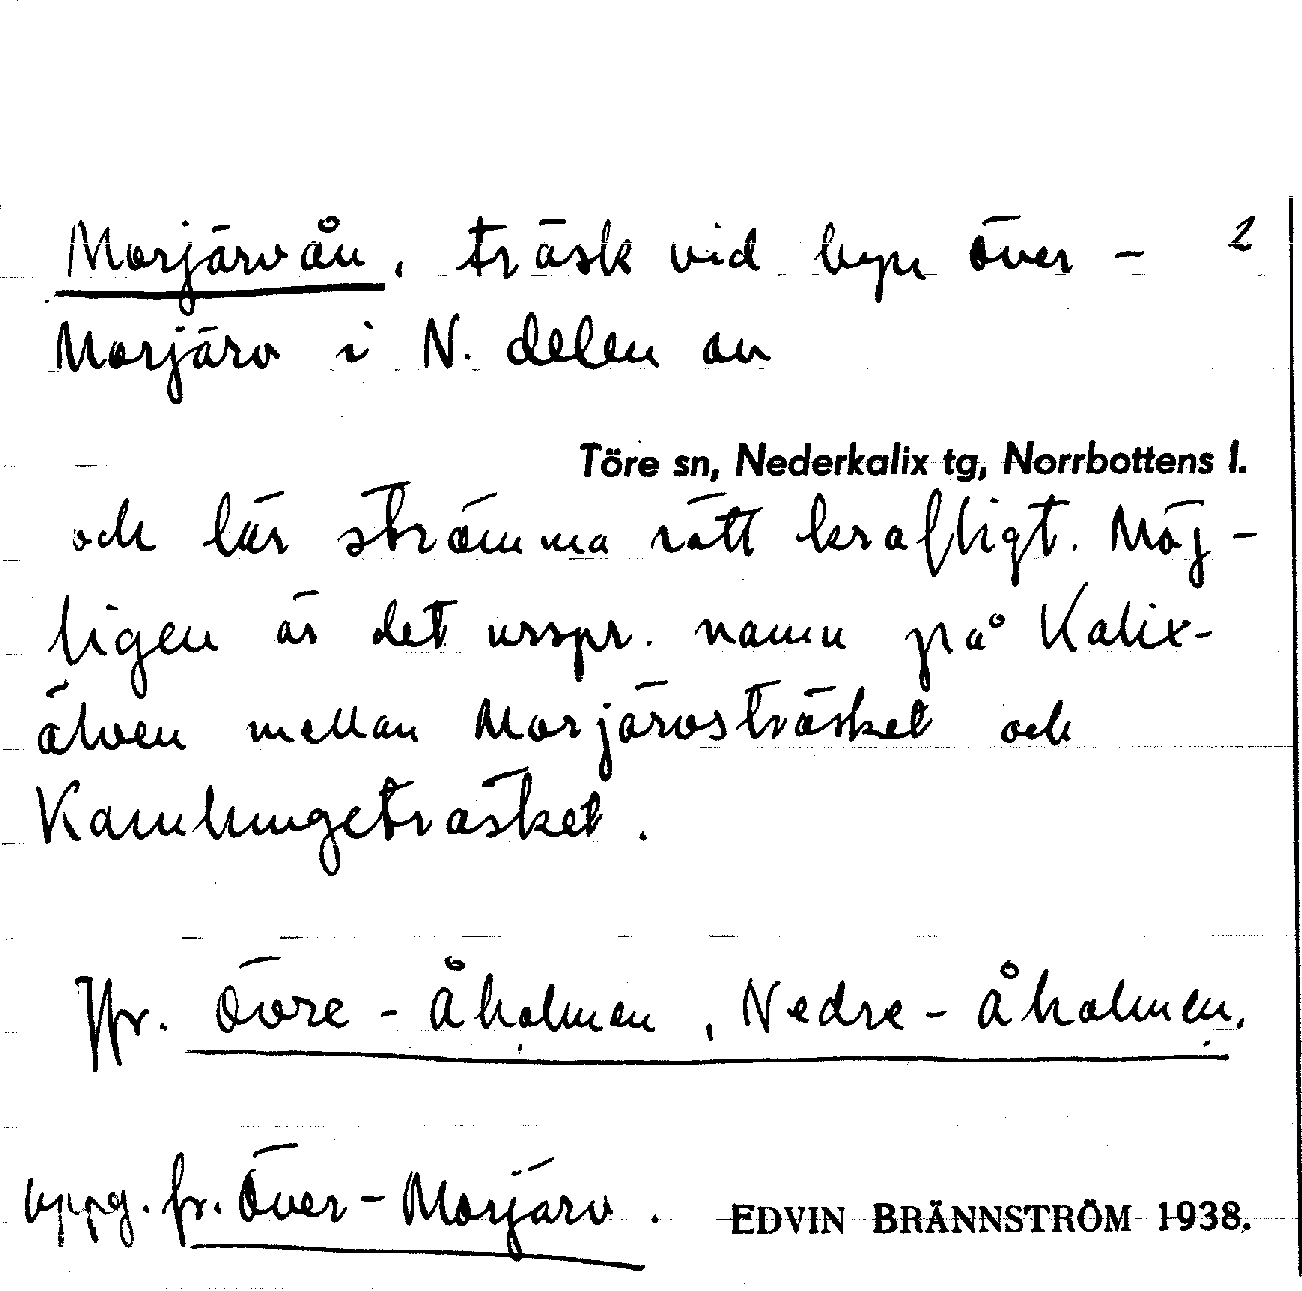 Morjärvån, träsk vid byn Över- 2
Morjärv i N. delen av
Töre sn, Nederkalix tg, Norrbottens l.
och lär strömma rätt kraftigt. Möj-
ligen är det urspr. namn på Kalix-
älven mellan Morjärvsträsket och
Kamlungeträsket.
Jfr. Övre-Åholmen, Nedre-Åholmen.
uppg. fr. Över-Morjärv. EDVIN BRÄNNSTRÖM 1938.